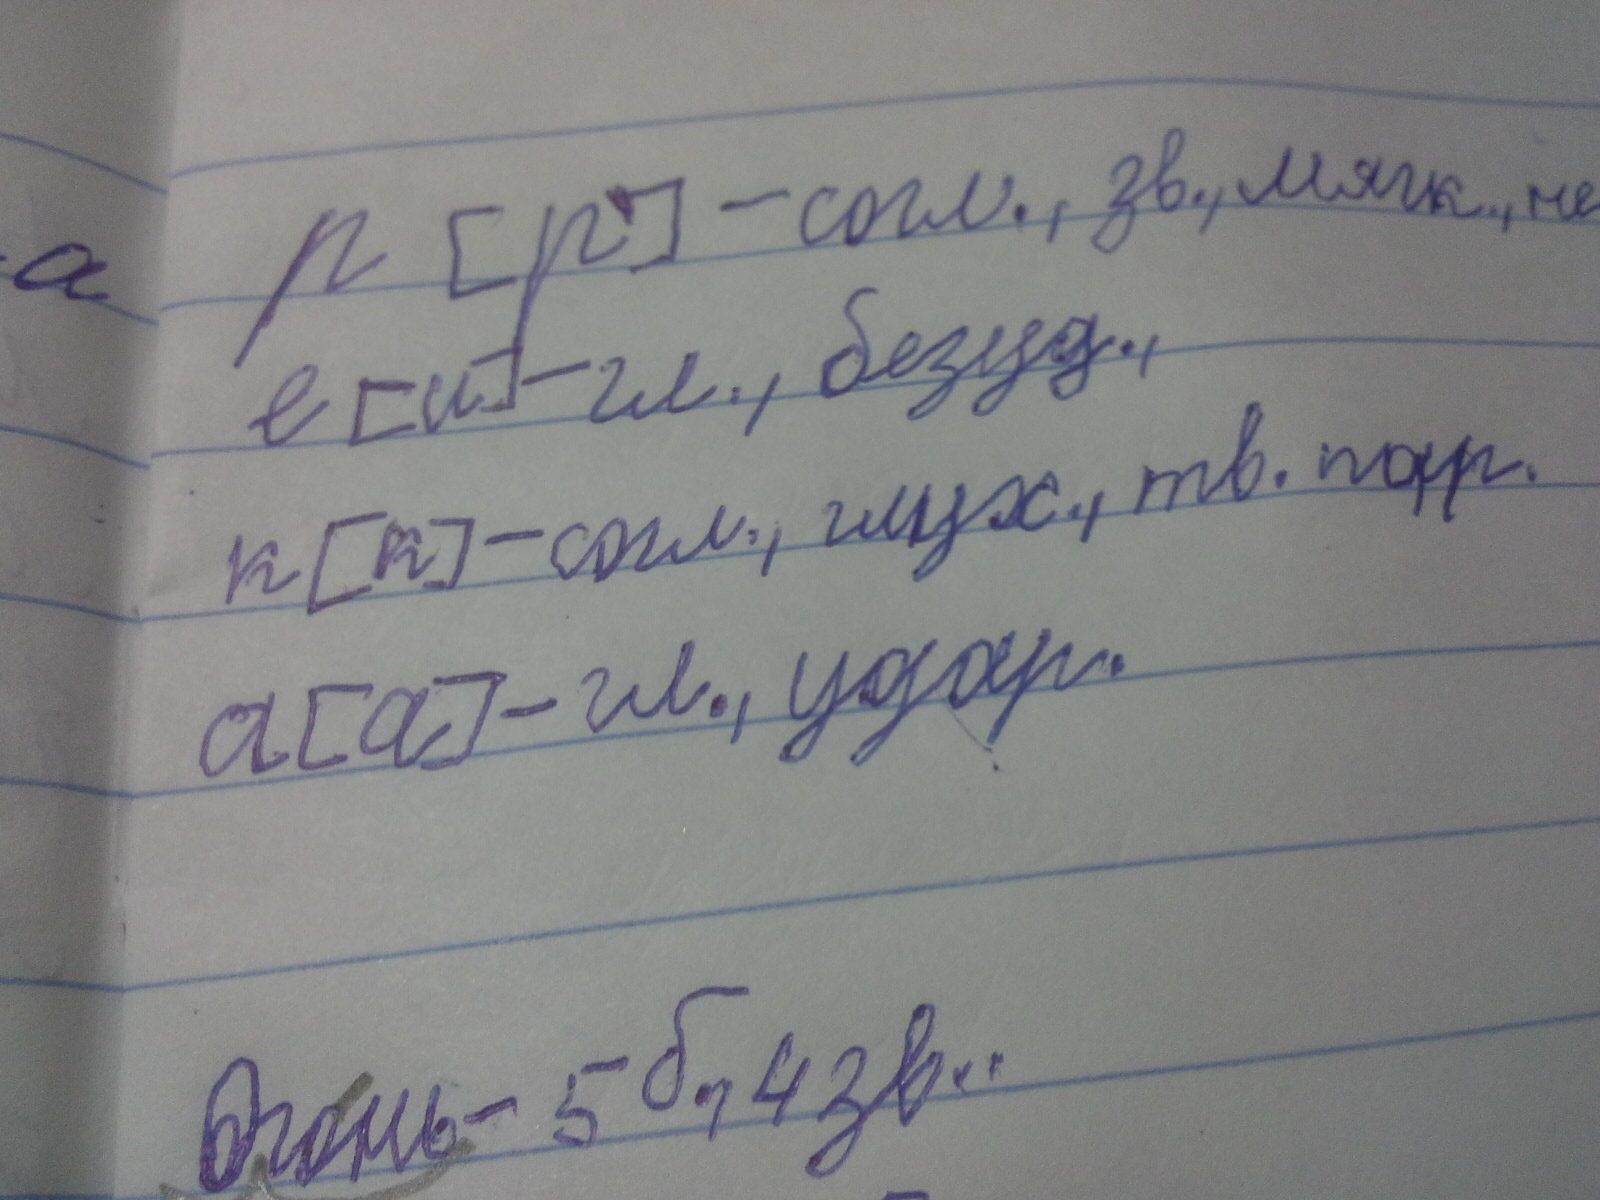 -а
р [р'] – согл., зв., мягк., не
е [и] – гл., безуд.,
к [к] – согл., глух., тв. пар.
а [а] – гл., удар.
Огонь – 5 б., 4 зв..